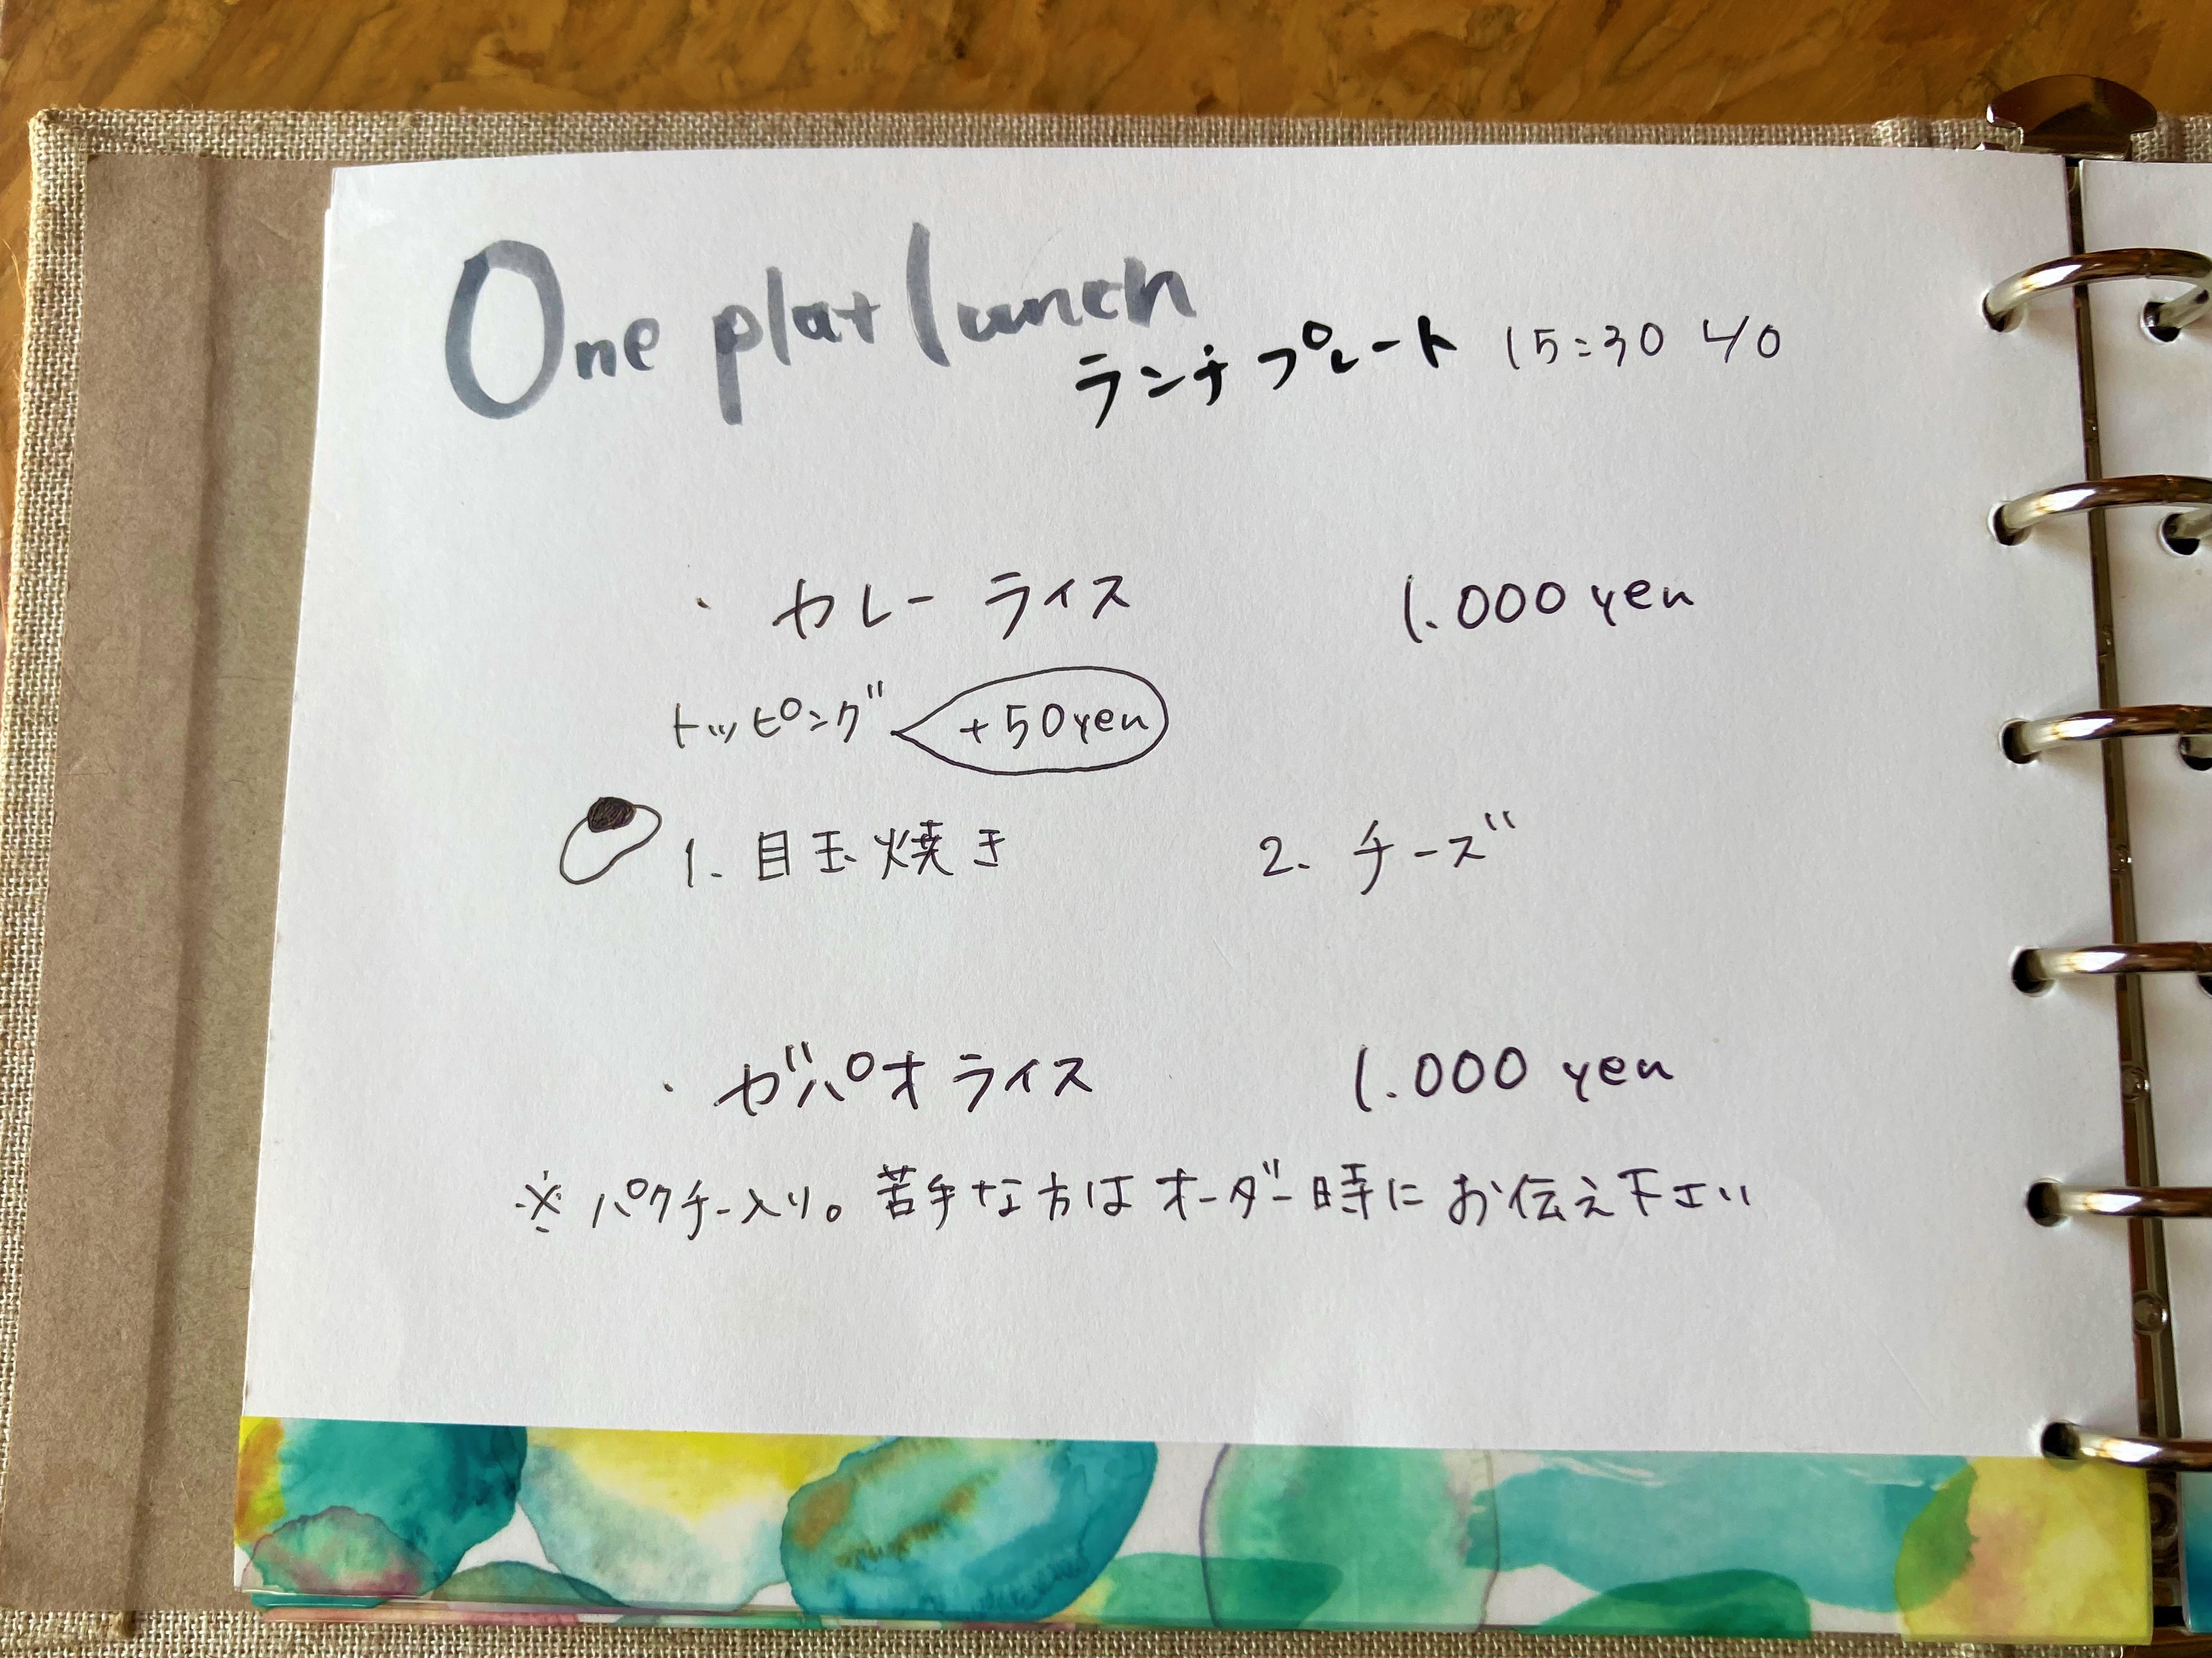 One plat lunch
ランチプレート 15:30 LO
・カレーライス 1.000 yen
トッピング +50yen
1. 目玉焼き 2. チーズ
・ガパオライス 1.000 yen
※パクチー入り。苦手な方はオーダー時にお伝え下さい